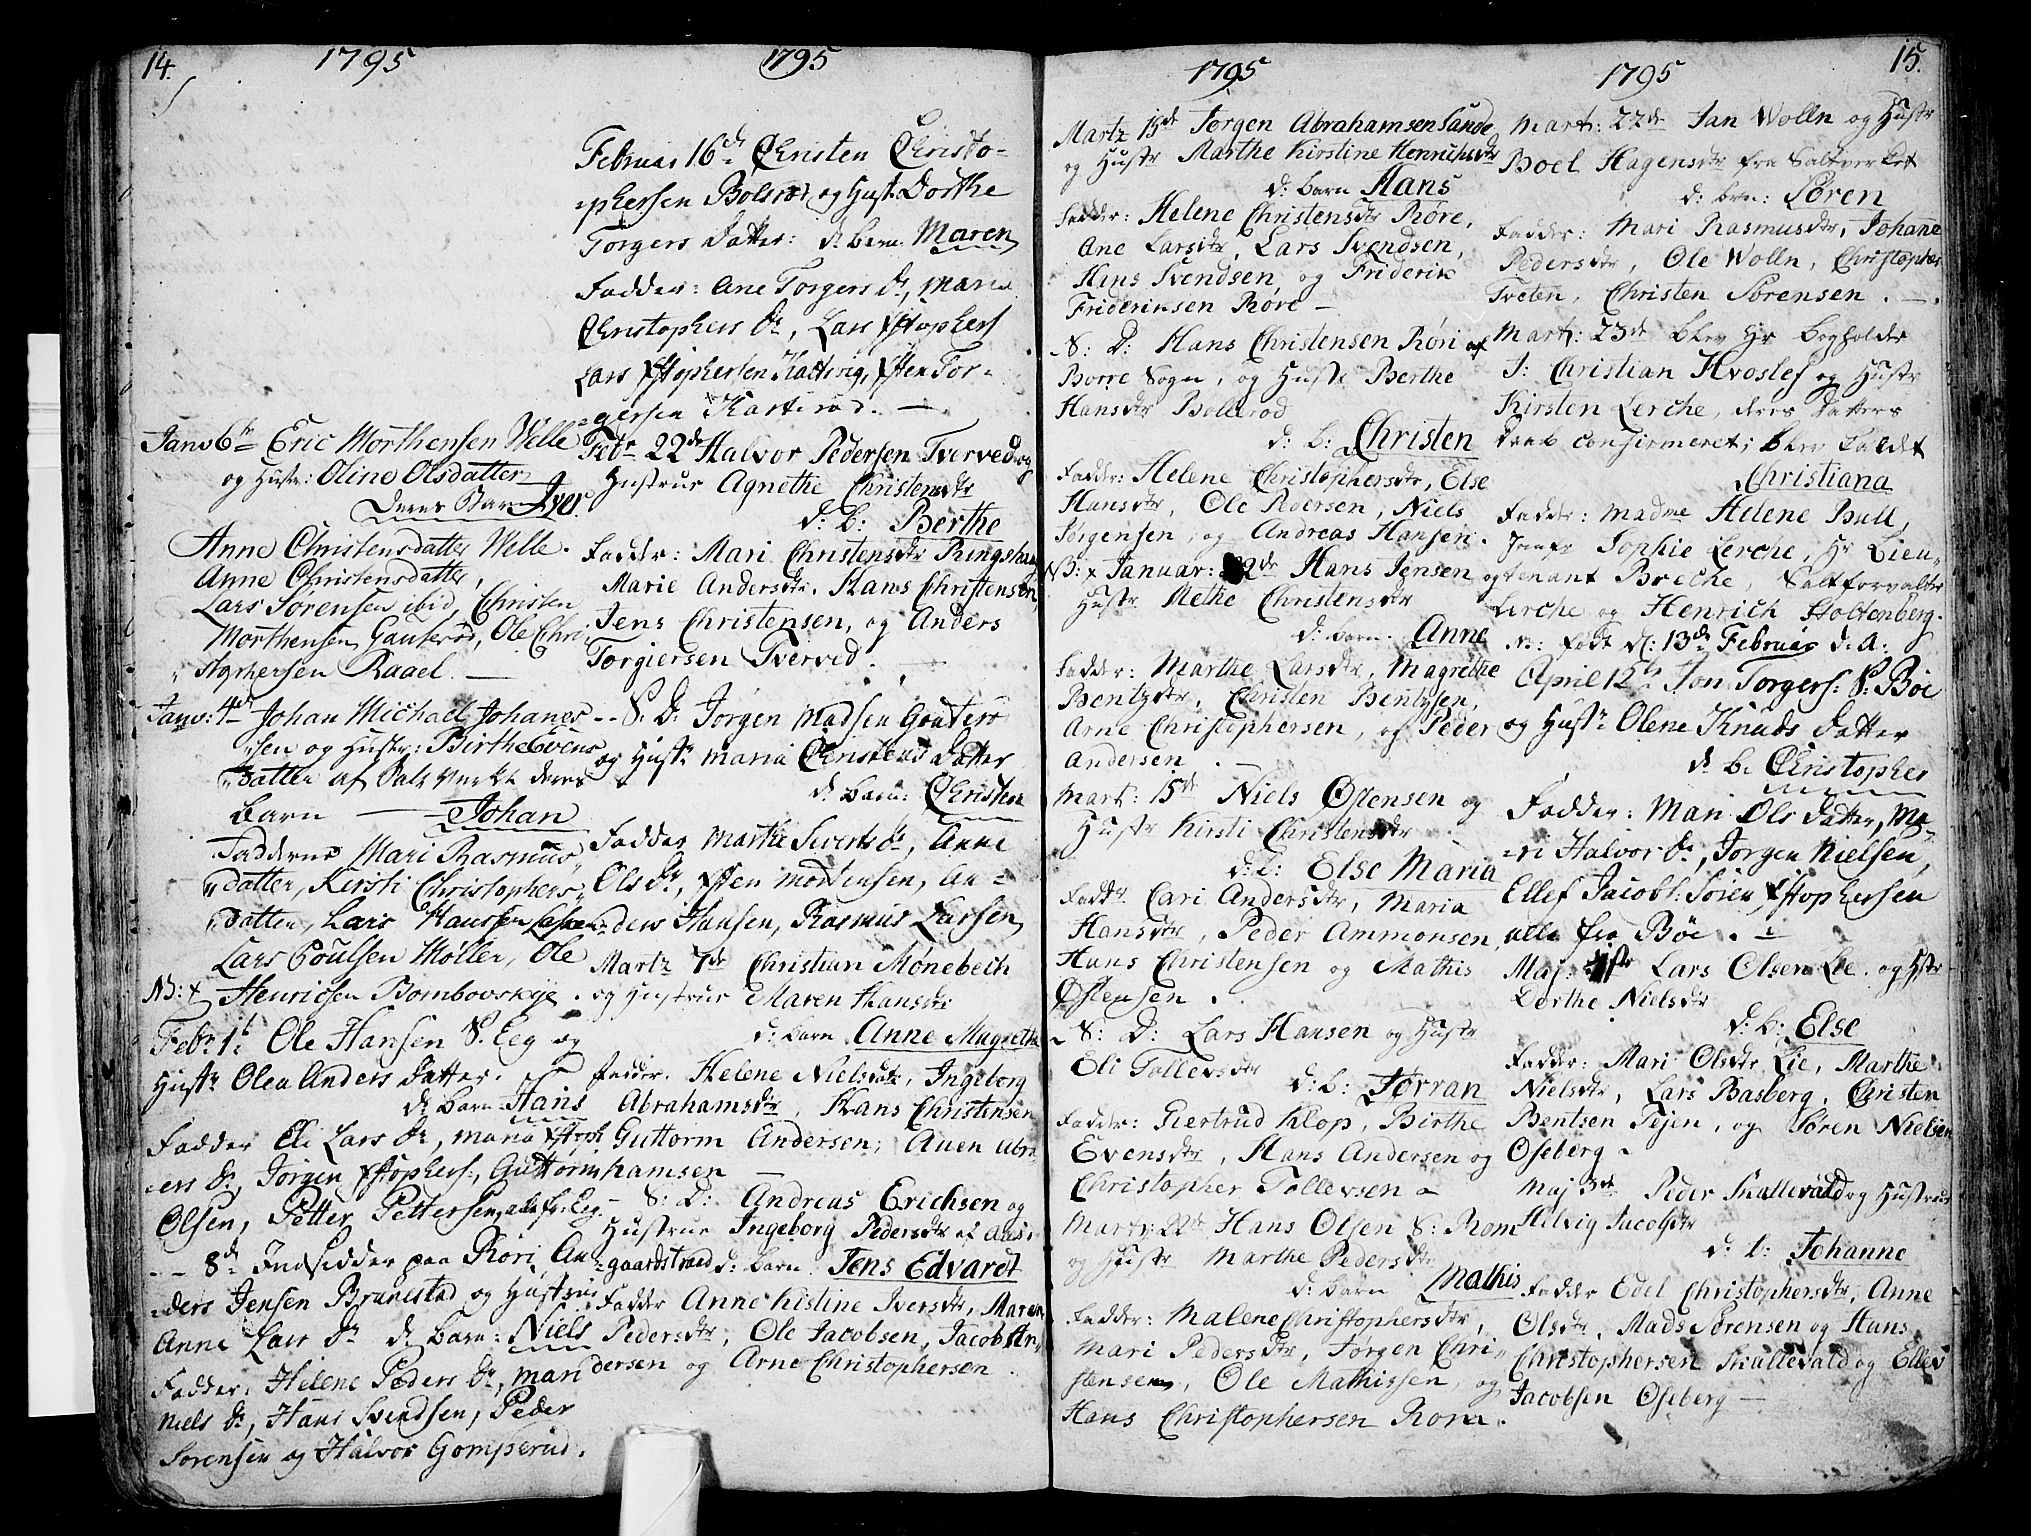 14.
1795
Janv 6te Eric Morthensen Welle
og Hustr: Oline Olsdatter
Deres Barn Iver
Anne Christensdatter Welle.
Anne Christensdatter,
Lars Sørensen ibid, Christen
Morthensen Gauterød, Ole Chri-
stophersen Raael.
Janv: 4de Johan Michael Johanes
sen og Hustr: Birthe Evens
datter af Salt Verket deres
Barn Johan
Fadderne Mari Rasmus
datter, Kersti Christophers
datter, Lars Hanssen
Lars Poulsen Møller, Ole
NB: x Henrichsen Bombovskye.
Febr 1t Ole Hansen S. Eeg og
Hustr Olea Anders Datter.
d: barn Hans
Fadder Eli Lars dr, Maria Xstoph
ers dr, Jørgen Xstophers:, Guttorm
Olsen, Petter Pettersen, alle fr. Eeg.
— 8de Indsidder paa Røri An-
ders Jensen Brunestad og Hustrue
Anne Lars dr d: Barn: Niels
Fadder: Helene Peders dr, Mari
Niels dr, Hans Svendsen, Peder
Sørensen og Halvor Gomperud.
1795
Februar 16d Christen Christo-
phersen Bolsrød og Hust. Dorthe
Torgers Datter: d: barn Maren
Fadder: Ane Torgers dr, Maria
Christophers dr, Lars Xstophers
Lars Xstophersen Kattevig, Xsten Tor-
gersen Karterød. —
Febr 22de Halvor Pedersen Tverved og
Hustrue Agnethe Christensdtr
d: b: Berthe
Fadder: Mari Christensdtr Ringshaug
Marie Andersdtr. Hans Christensen,
Jens Christensen, og Anders
Torgiersen Tverved.
— S. D: Jørgen Madsen Gouterø
og Hustr Maria Christens Datter
d: barn: Christen
Fadder Marthe Siverts dr, Anne
Ols dr, Xsten Mortensen, An-
ders Hansen, Rasmus Larsen
Martz 7de Christian Mønebech
og Hustrue Maren Hansdtr
d: barn Anne Magretha
Fadder. Helene Nielsdatr, Ingeborg
Abrahamsdtr, Hans Christensen
Guttorm Andersen, Auen Abra-
hamsen —
— S: D: Andreas Erichsen og
Hustrue Ingeborg Pedersdtr af Aas-
gaardstrand d: barn Jens Edvardt
Fadder Anne Kistine Iversdtr, Maren
Pedersdtr, Ole Jacobsen, Jacob An-
dersen og Arne Christophersen.
1795
Martz 15de Jørgen Abrahamsen Sande
og Hustr Marthe Kirstine Henrichsdtr
d: barn Hans
Fadder: Helene Christensdtr Røre,
Ane Larsdtr, Lars Svendsen,
Hans Svendsen, og Friderik
Friderichsen Røre —
S: D: Hans Christensen Røri af
Borre Sogn, og Hustr Berthe
Hansdtr Bollerød
d: b: Christen
Fadder: Helene Christophersdtr, Else
Hansdtr, Ole Pedersen, Niels
Jørgensen, og Andreas Hansen.
NB: x Januar: 2de Hans Jensen og
Hustr Methe Christensdtr
d: barn. Anne
Fadder: Marthe Larsdtr, Magrethe
Bentzdtr, Christen Bentzsen,
Arne Christophersen, og Peder
Andersen.
Mart: 15de Niels Østensen og
Hustr Kirsti Christensdtr
d: b: Else Maria
Faddr Cari Andersdtr, Maria
Hansdtr, Peder Ammonsen,
Hans Christensen og Mathis
Østensen.
S: D: Lars Hansen og Hustr
Eli Tollevsdtr
d: b: Jørran
Fadder: Giertrud Klop, Birthe
Evensdtr, Hans Andersen og
Christopher Tollevsen —
Mart: 22de Hans Olsen S: Rom
og Hustr Marthe Pedersdtr
d: barn Mathis
Fadder: Malene Christophersdtr,
Mari Pedersdtr, Jørgen Chri-
stensen, Ole Mathissen, og
Hans Christophersen Rom.
1795
15.
Mart: 22de Jan Wolln og Hustr
Boel Hagensdtr fra Saltverket
d: brn: Søren
Fadder: Mari Rasmusdtr, Johanne
Pedersdtr, Ole Wolln, Christopher
Tveten, Christen Sørensen. —.
Mart: 23de blev Hr Bogholder
J: Christian Hvoslef og Hustr
Kirsten Lerche, deres Datters
Daab confirmeret; blev kaldet
Christiana
Fadder: Madme Helene Bull,
Jomfr Sophie Lerche, Hr Lieu-
tenant Breche, Saltforvalter
Lerche og Henrich Stoltenberg.
N: født d: 13de Februar d: A:
April 12te Jon Torgers: S: Bøe
og Hustr Olene Knuds Datter
d: b: Christopher
Fadder: Mari Ols Datter, Ma-
ri Halvor dr, Jørgen Nielsen,
Ellef Jacobs: Søren Xstophersen
alle fra Bøe.
Maj: 1ste Lars Olsen Lie og Hstr
Dorthe Nielsdtr
d: b: Else
Fadder: Mari Olsdtr Lie, Marthe
Nielsdtr, Lars Basberg, Christen
Bentsen Fijen, og Søren Nielsen
Oseberg.
Maj 3de Peder Skallevald og Hustrue
Helvig Jacobsdtr
d: b: Johanne
Fadder Edel Christophersdtr, Anne
Olsdtr, Mads Sørensen og Hans
Christophersen Skallevald og Ellev
Jacobsen Oseberg —